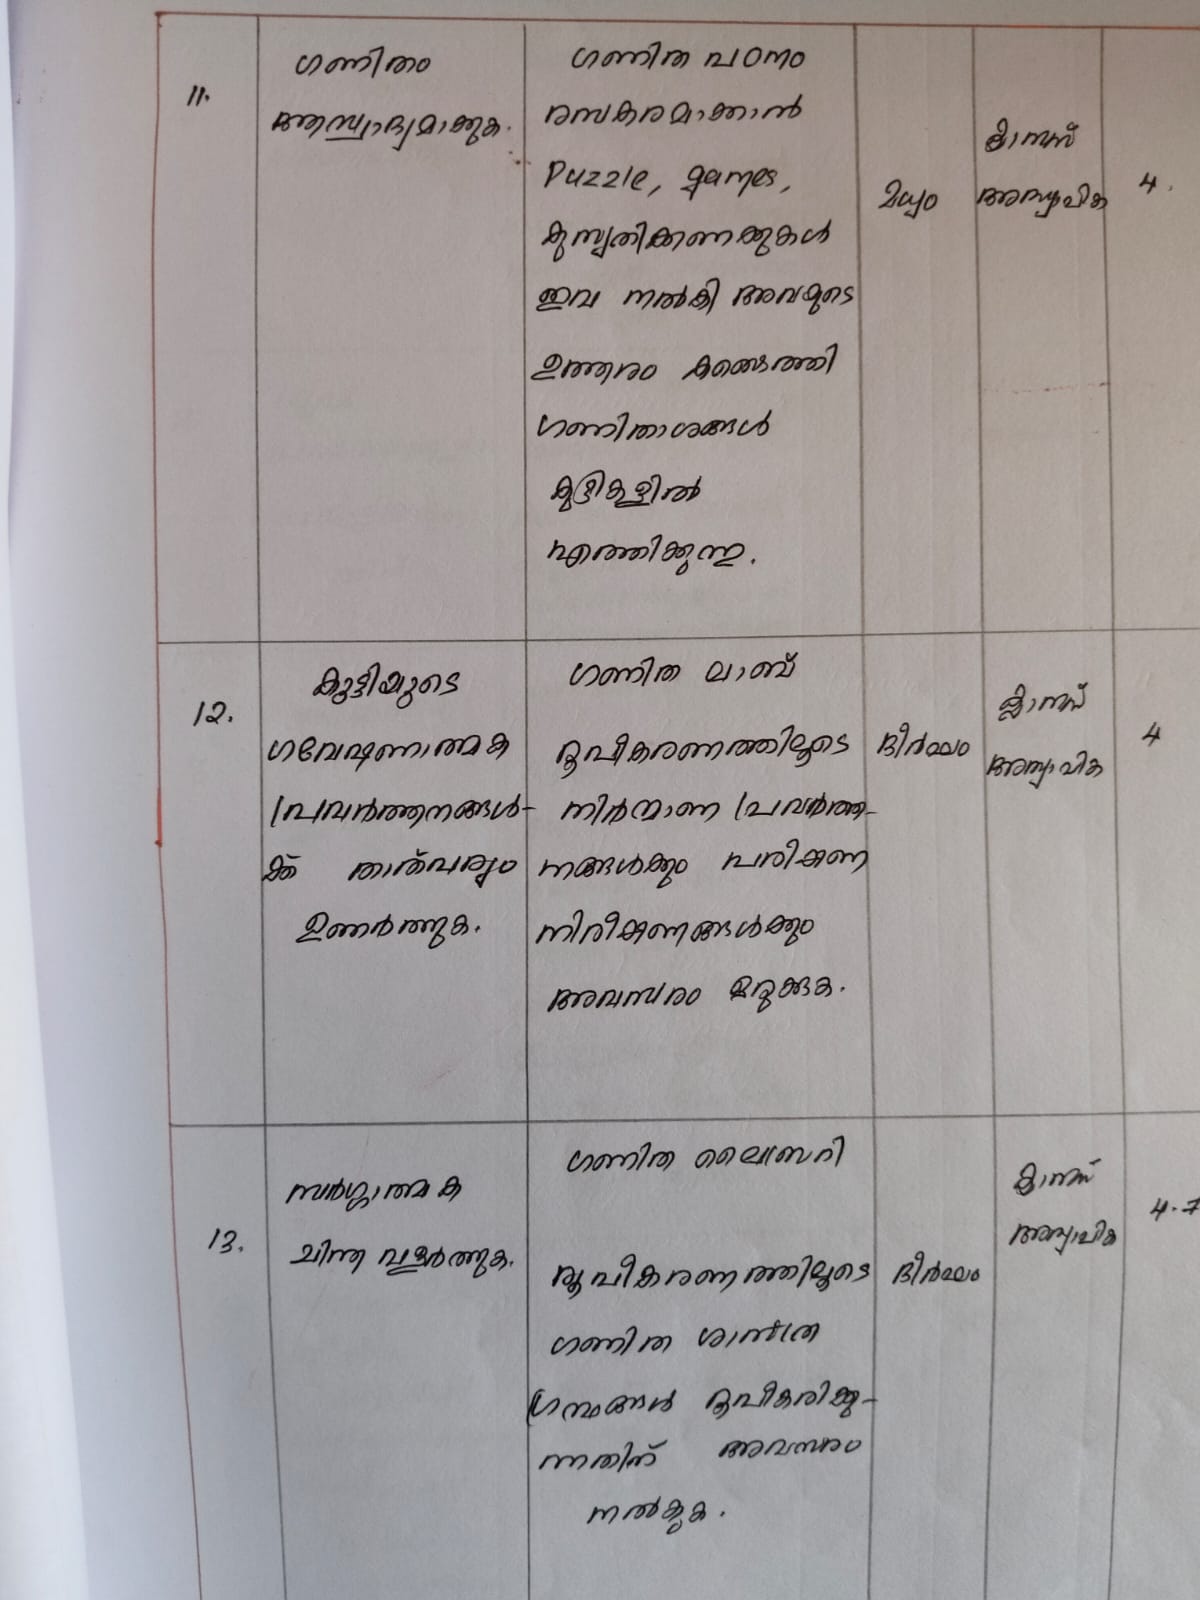 11.
ഗണിതം
ആസ്വാദ്യമാക്കുക.
ഗണിത പഠനം
രസകരമാക്കാൻ
Puzzle, games,
കുസൃതിക്കണക്കുകൾ
ഇവ നൽകി അവയുടെ
ഉത്തരം കണ്ടെത്തി
ഗണിതാശങ്ങൾ
കുട്ടികളിൽ
എത്തിക്കുന്നു.
മധ്യം
ക്ലാസ്സ്
അധ്യാപിക
4.
12.
കുട്ടിയുടെ
ഗവേഷണാത്മക
പ്രവർത്തനങ്ങൾ-
ക്ക് താത്പര്യം
ഉണർത്തുക.
ഗണിത ലാബ്
രൂപീകരണത്തിലൂടെ
നിർമ്മാണ പ്രവർത്ത-
നങ്ങൾക്കും പരീക്ഷണ
നിരീക്ഷണങ്ങൾക്കും
അവസരം ഒരുക്കുക.
ദീർഘം
ക്ലാസ്സ്
അധ്യാപിക
4
13.
സർഗ്ഗാത്മക
ചിന്ത വളർത്തുക.
ഗണിത ലൈബ്രറി
രൂപീകരണത്തിലൂടെ
ഗണിത ശാസ്ത്ര
ഗ്രന്ഥങ്ങൾ രൂപീകരിക്കു-
ന്നതിന് അവസരം
നൽകുക.
ദീർഘം
ക്ലാസ്സ്
അധ്യാപിക
4-7